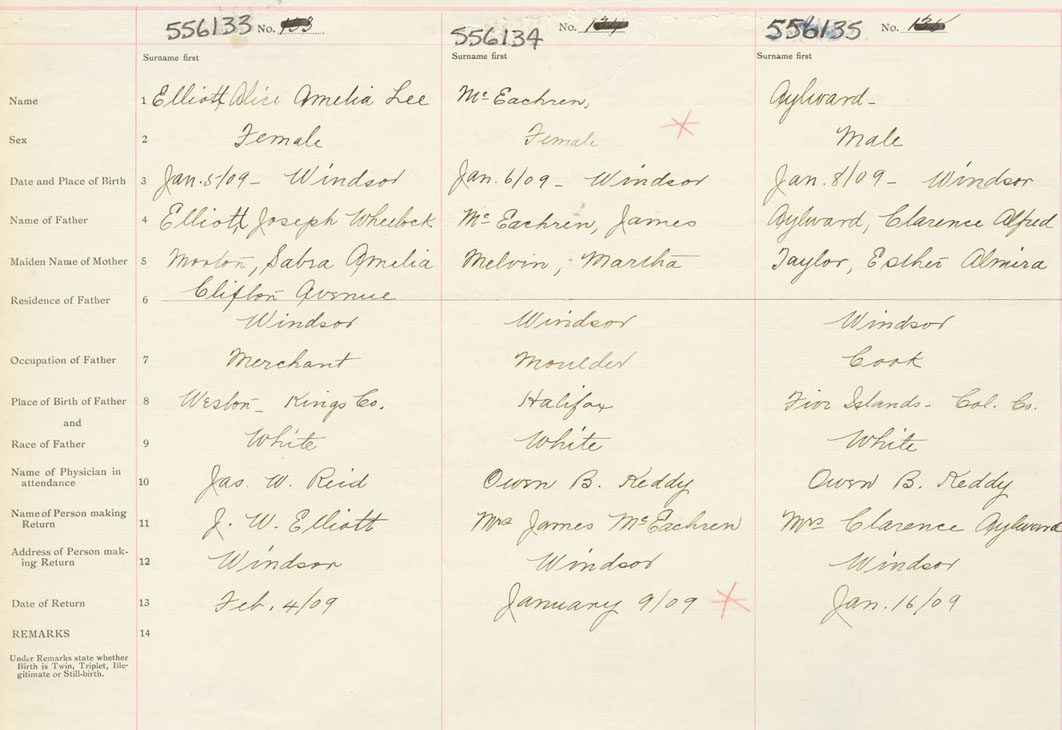 556133 No. 133 556134 No. 134 556135 No. 135
Surname first Surname first Surname first
Name 1 Elliott, Alice Amelia Lee McEachren, Aylward-
Sex 2 Female Female Male
Date and Place of Birth 3 Jan. 5/09- Windsor Jan. 6/09- Windsor Jan. 8/09- Windsor
Name of Father 4 Elliott, Joseph Wheelock McEachren, James Aylward, Clarence Alfred
Maiden Name of Mother 5 Morton, Sabra Amelia Melvin, Martha Taylor, Esther Almira
Residence of Father 6 Clifton Avenue
Windsor Windsor Windsor
Occupation of Father 7 Merchant Moulder Cook
Place of Birth of Father 8 Weston- Kings Co. Halifax Five Islands- Col. Co.
and
Race of Father 9 White White White
Name of Physician in
attendance 10 Jas. W. Reid Owen B. Keddy Owen B. Keddy
Name of Person making
Return 11 J. W. Elliott Mrs James McEachren Mrs Clarence Aylward
Address of Person mak-
ing Return 12 Windsor Windsor Windsor
Date of Return 13 Feb. 4/09 January 9/09 Jan. 16/09
REMARKS 14
Under Remarks state whether
Birth is Twin, Triplet, Ille-
gitimate or Still-birth.